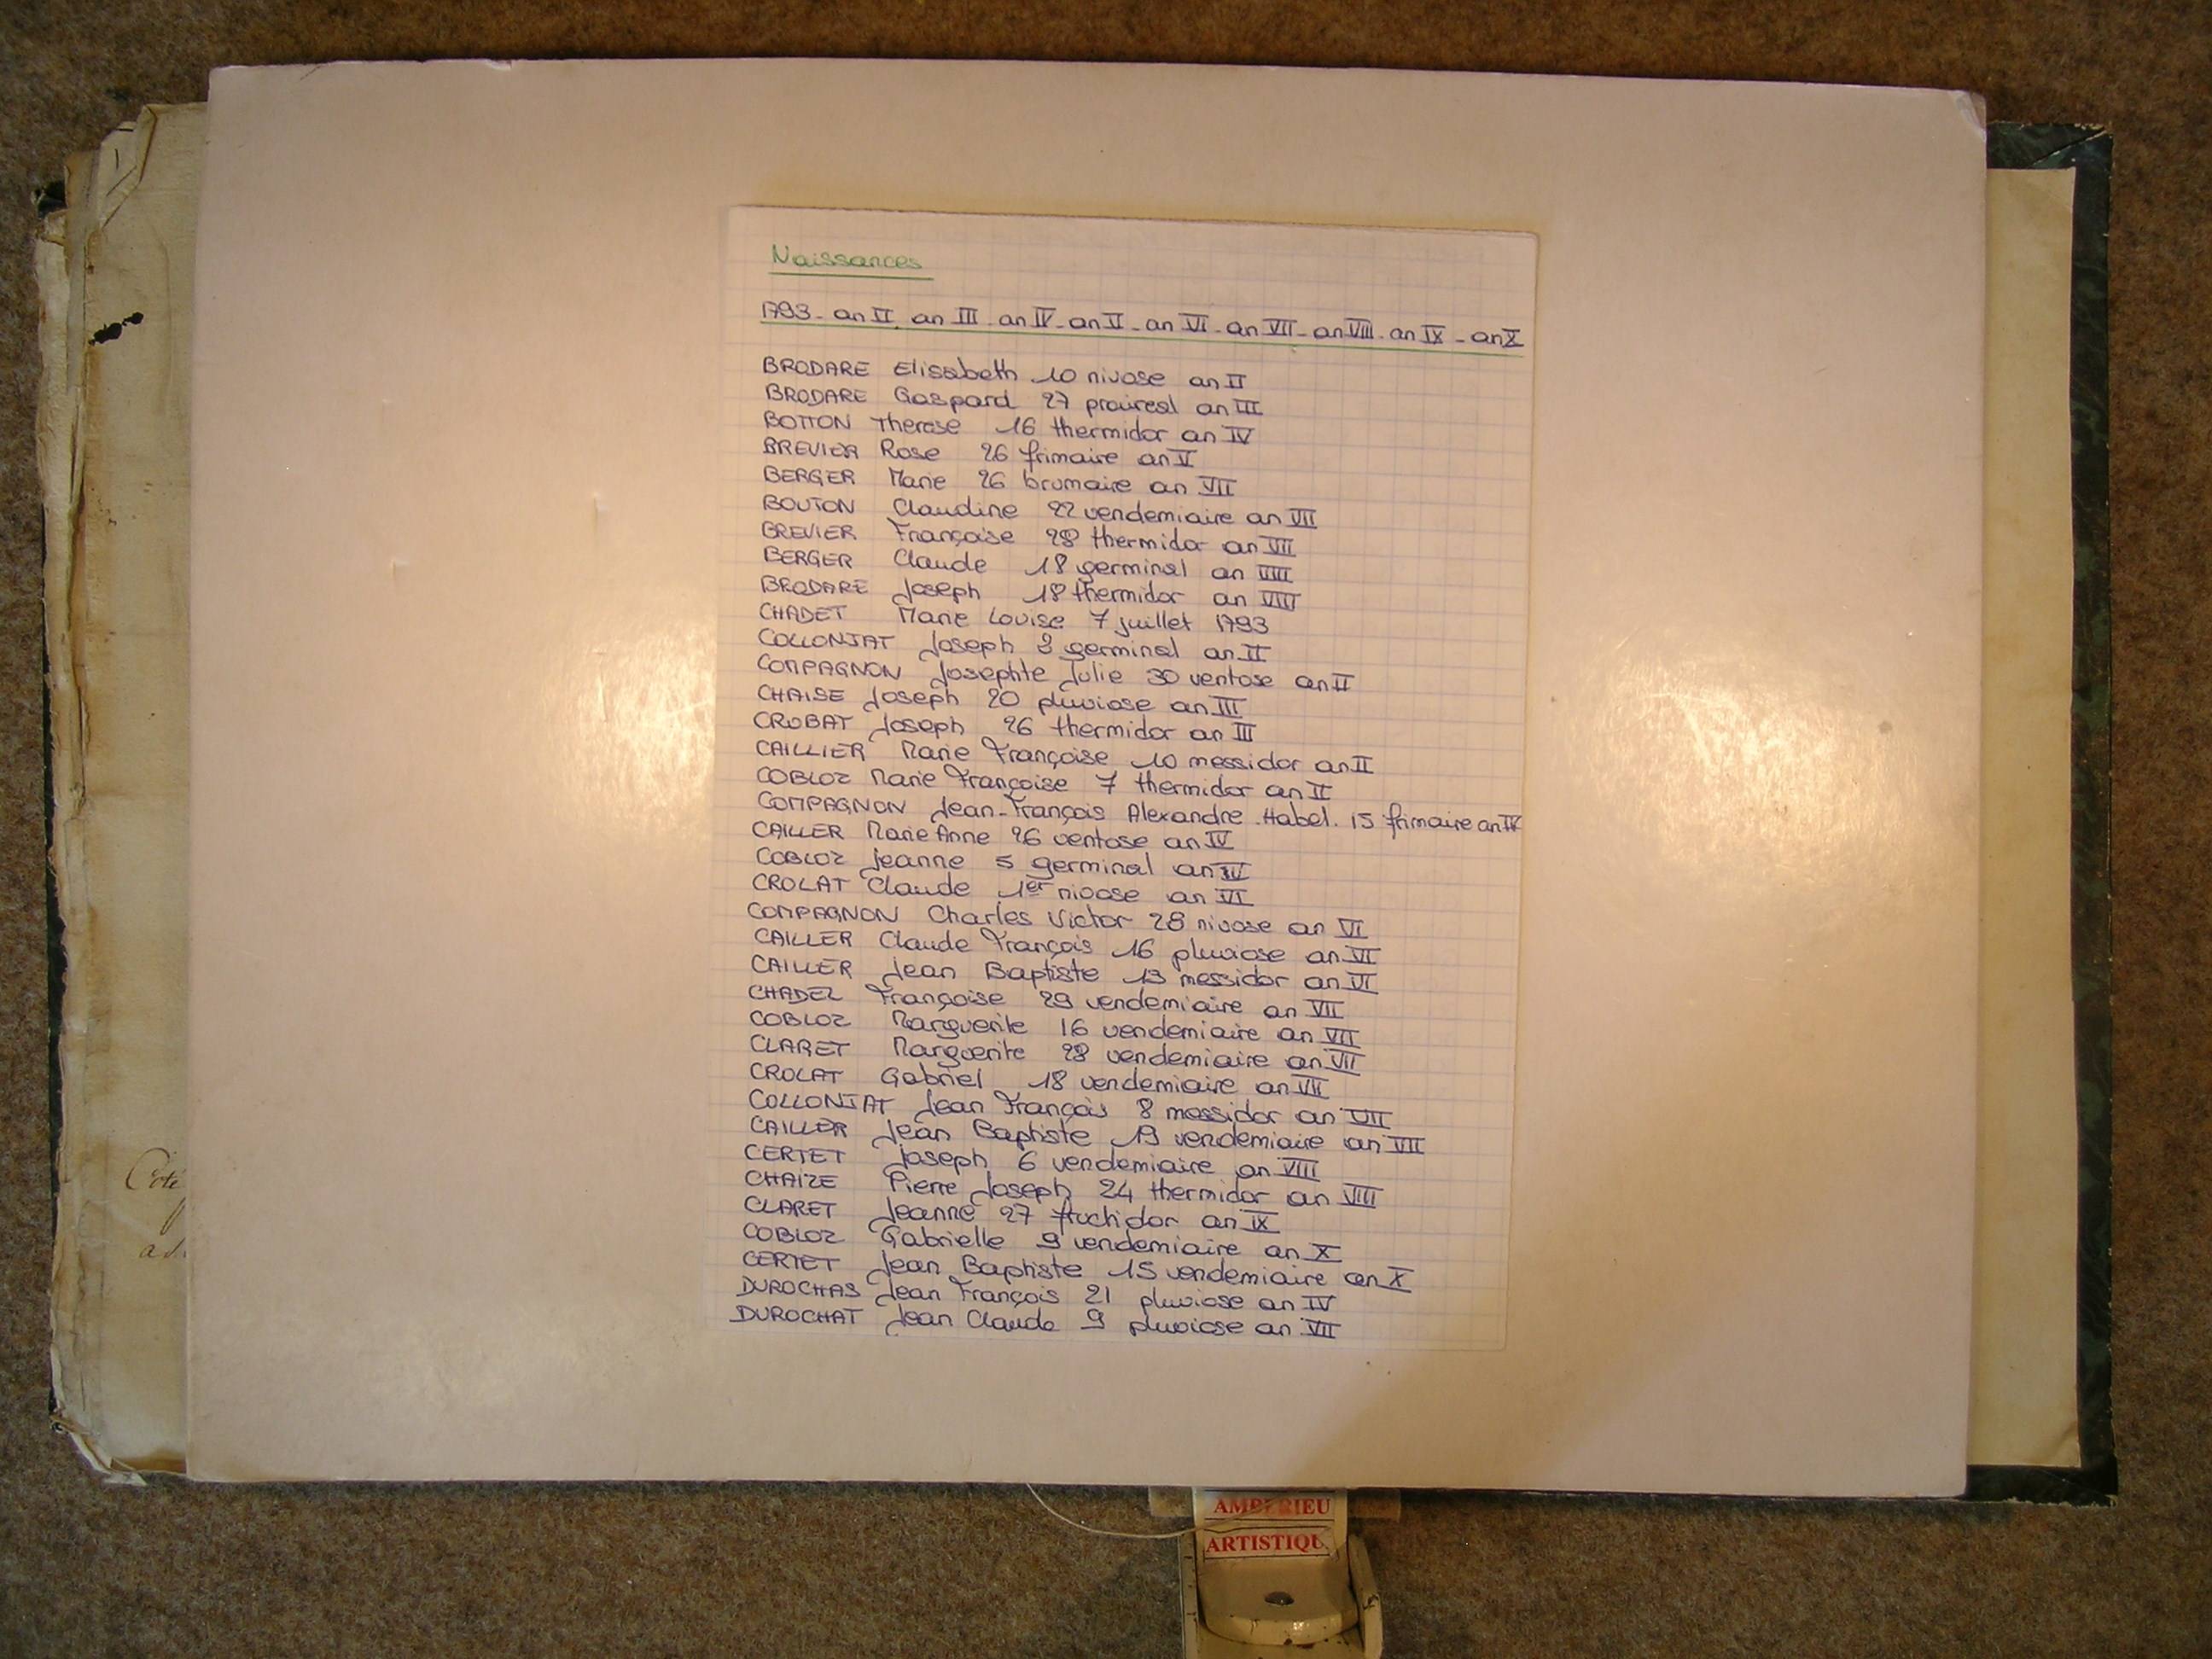 Naissances
1793 - an II - an III - an IV - an V - an VI - an VII - an VIII - an IX - an X
BRODARE Elisabeth 10 nivose an II
BRODARE Gaspard 27 prairesl an III
BOTTON Therese 16 thermidor an IV
BREVIER Rose 26 frimaire an V
BERGER Marie 26 brumaire an VII
BOUTON Claudine 22 vendemiaire an VII
BREVIER Françoise 28 thermidor an VII
BERGER Claude 18 germinal an VIII
BRODARE Joseph 18 thermidor an VIII
CHADET Marie Louise 7 juillet 1793
COLLONJAT Joseph 2 germinal an II
COMPAGNON Josephte Julie 30 ventose an II
CHAISE Joseph 20 pluviose an III
CROBAT Joseph 26 thermidor an III
CAILLIER Marie Françoise 10 messidor an II
COBLOZ Marie Françoise 7 thermidor an II
COMPAGNON Jean-François Alexandre Habel. 15 frimaire an IV
CAILLER Marie Anne 26 ventose an IV
COBLOZ Jeanne 5 germinal an IV
CROLAT Claude 1er nivose an VI
COMPAGNON Charles Victor 28 nivose an VI
CAILLER Claude François 16 pluviose an VI
CAILLER Jean Baptiste 13 messidor an VI
CHADEL Françoise 29 vendemiaire an VII
COBLOZ Marguerite 16 vendemiaire an VII
CLARET Marguerite 28 vendemiaire an VII
CROLAT Gabriel 18 vendemiaire an VII
COLLONJAT Jean François 8 messidor an VII
CAILLER Jean Baptiste 19 vendemiaire an VII
CERTET Joseph 6 vendemiaire an VIII
CHAIZE Pierre Joseph 24 thermidor an VIII
CLARET Jeanne 27 fructidor an IX
COBLOZ Gabrielle 9 vendemiaire an X
CERTET Jean Baptiste 15 vendemiaire an X
DUROCHAS Jean François 21 pluviose an IV
DUROCHAT Jean Claude 9 pluviose an VII
Coté
AMBERIEU
ARTISTIQU